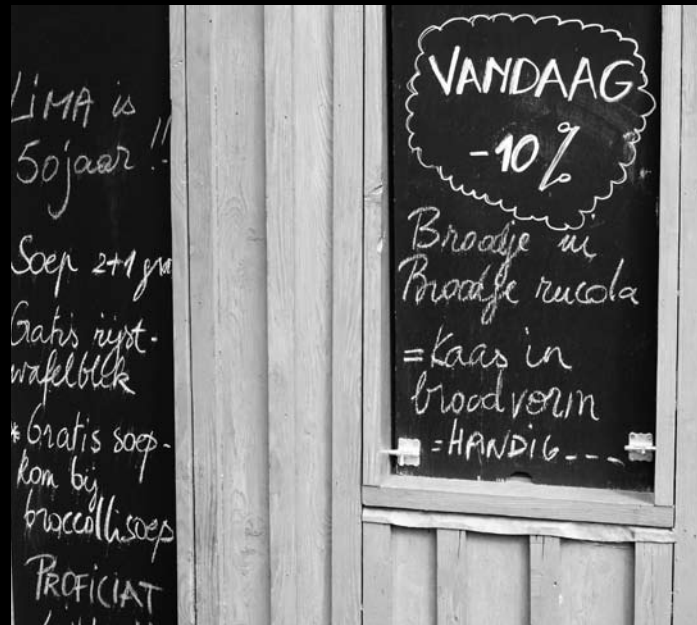 LIMA is
50 jaar !!
Soep 2+1 gra
Gratis rijst-
wafelblik
* Gratis soep-
kom bij
broccollisoep
PROFICIAT
VANDAAG
-10%
Broodje ui
Broodje rucola
= Kaas in
broodvorm
= HANDIG---